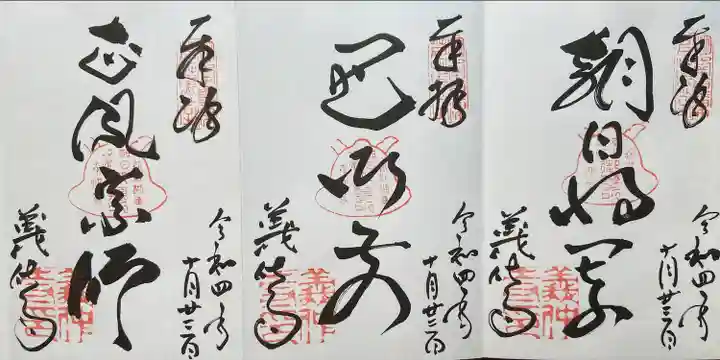 奉拝
令和四年
十月廿三日
朝日将軍
義仲寺
奉拝
令和四年
十月廿三日
巴御前
義仲寺
奉拝
令和四年
十月廿三日
正風宗師
義仲寺